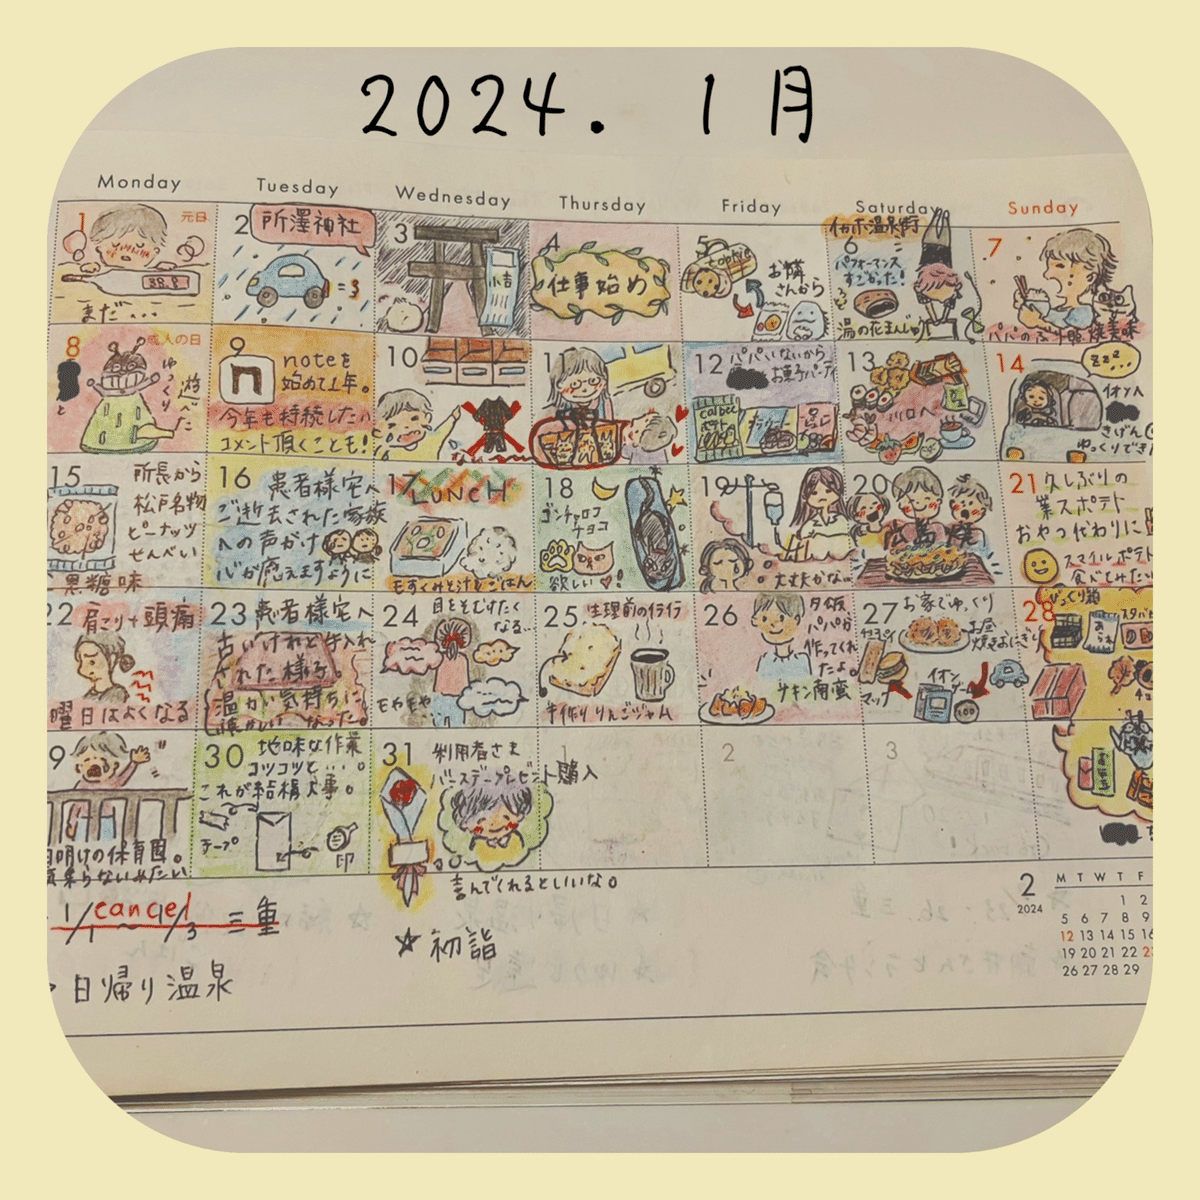 2024. 1月
Monday Tuesday Wednesday Thursday Friday Saturday Sunday
1 元日
38.8
まだ...
2 所澤神社
3
小吉
4
仕事始め
5
お隣
さんから
6
パフォーマンス
すごかった!
湯の花まんじゅ
7
8 成人の日
と
ゆっくり
遊べた
9
noteを
始めて1年。
今年も持続したい
コメント頂くことも!
10
11
12 パパいないから
お菓子パーティ
Calbee
ポテト
13
14
zzz..
イオンへ
15
所長から
松戸名物
ピーナッツ
せんべい
黒糖味
16 患者様宅へ
ご逝去された家族
への声がけ
心が癒えますように
17 LUNCH
もずくみそ汁とごはん
18
ゴンチャロフ
チョコ
欲しい♡!
19
大丈夫かな...
20
広島焼
21 久しぶりの
業スポテト
おやつ代わりに
スマイルポテト
食べてみたい
22 肩こり+頭痛
曜日はよくなる
23 患者様宅へ
古いけれど手入れ
された様子。
温かい気持ちに
懐かしくなった。
24 目をそむけたく
なる...
モやモや
25 生理前のイライラ
手作りりんごジャム
26 夕飯
パパが
作ってくれ
たよ。
チキン南蛮
27 お家でゆっくり
お昼
焼きおにぎり
マック
イオン
28
びっくり箱
9
明けの保育園。
30 地味な作業
コツコツと...。
これが結構大事。
テープ
印
31 利用者さま
バースデープレゼント購入
喜んでくれるといいな。
1
2
3
cancel
1/1~1/3 三重
☆初詣
日帰り温泉
2
2024
M T W T F
1 2
5 6 7 8 9
12 13 14 15 16
19 20 21 22 23
26 27 28 29